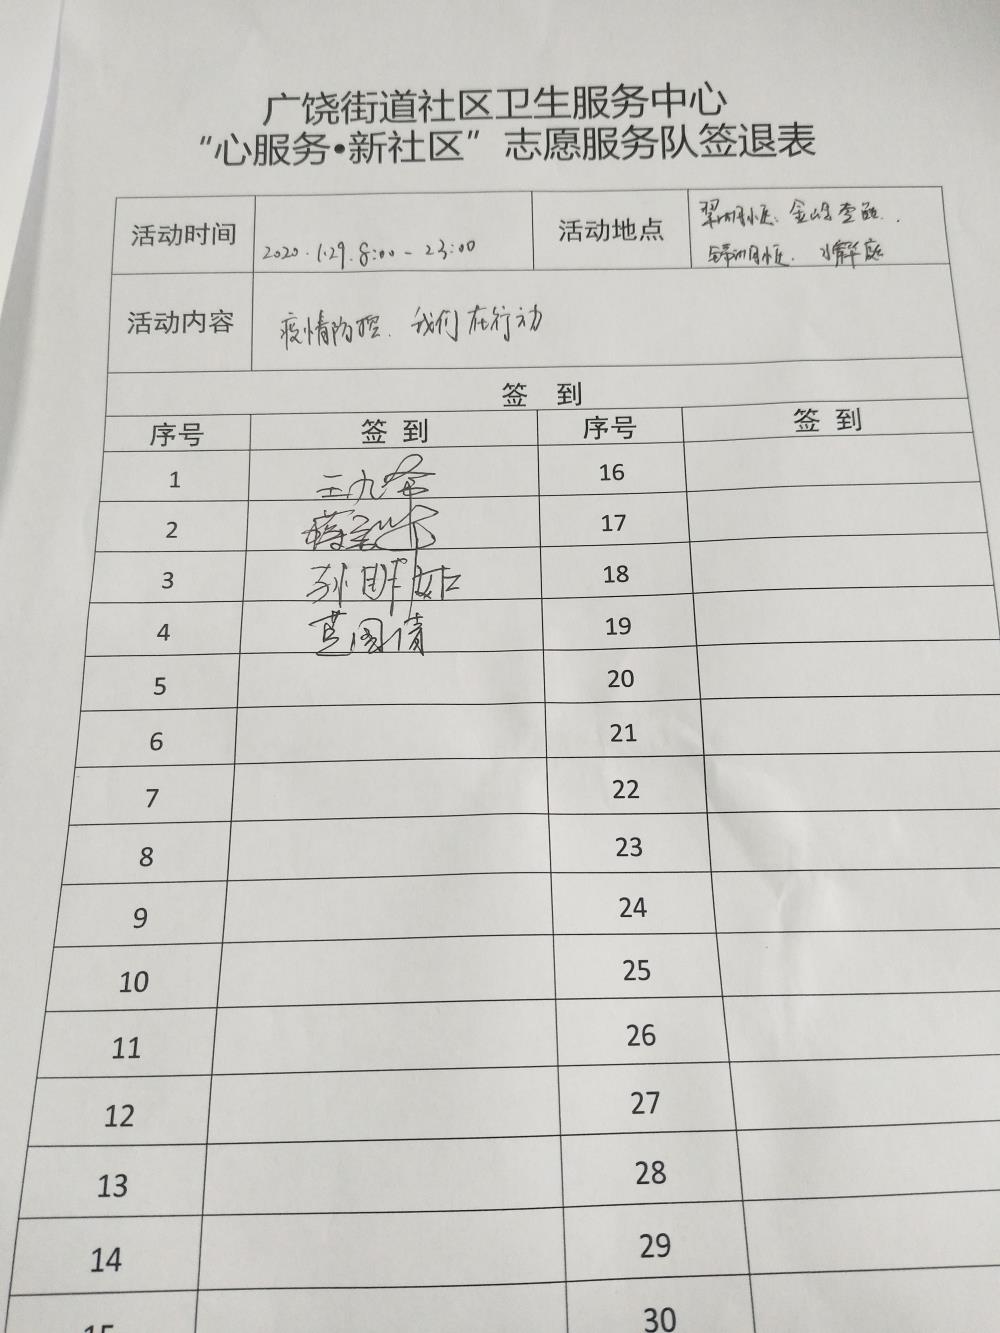 广饶街道社区卫生服务中心
“心服务•新社区”志愿服务队签退表
活动时间 2020.1.29.8:00-23:00 活动地点
活动内容 疫情防控.我们在行动
签 到
序号 签 到 序号 签 到
1 16
2 17
3 孙 18
4 19
5 20
6 21
7 22
8 23
9 24
10 25
11 26
12 27
13 28
14 29
15 30